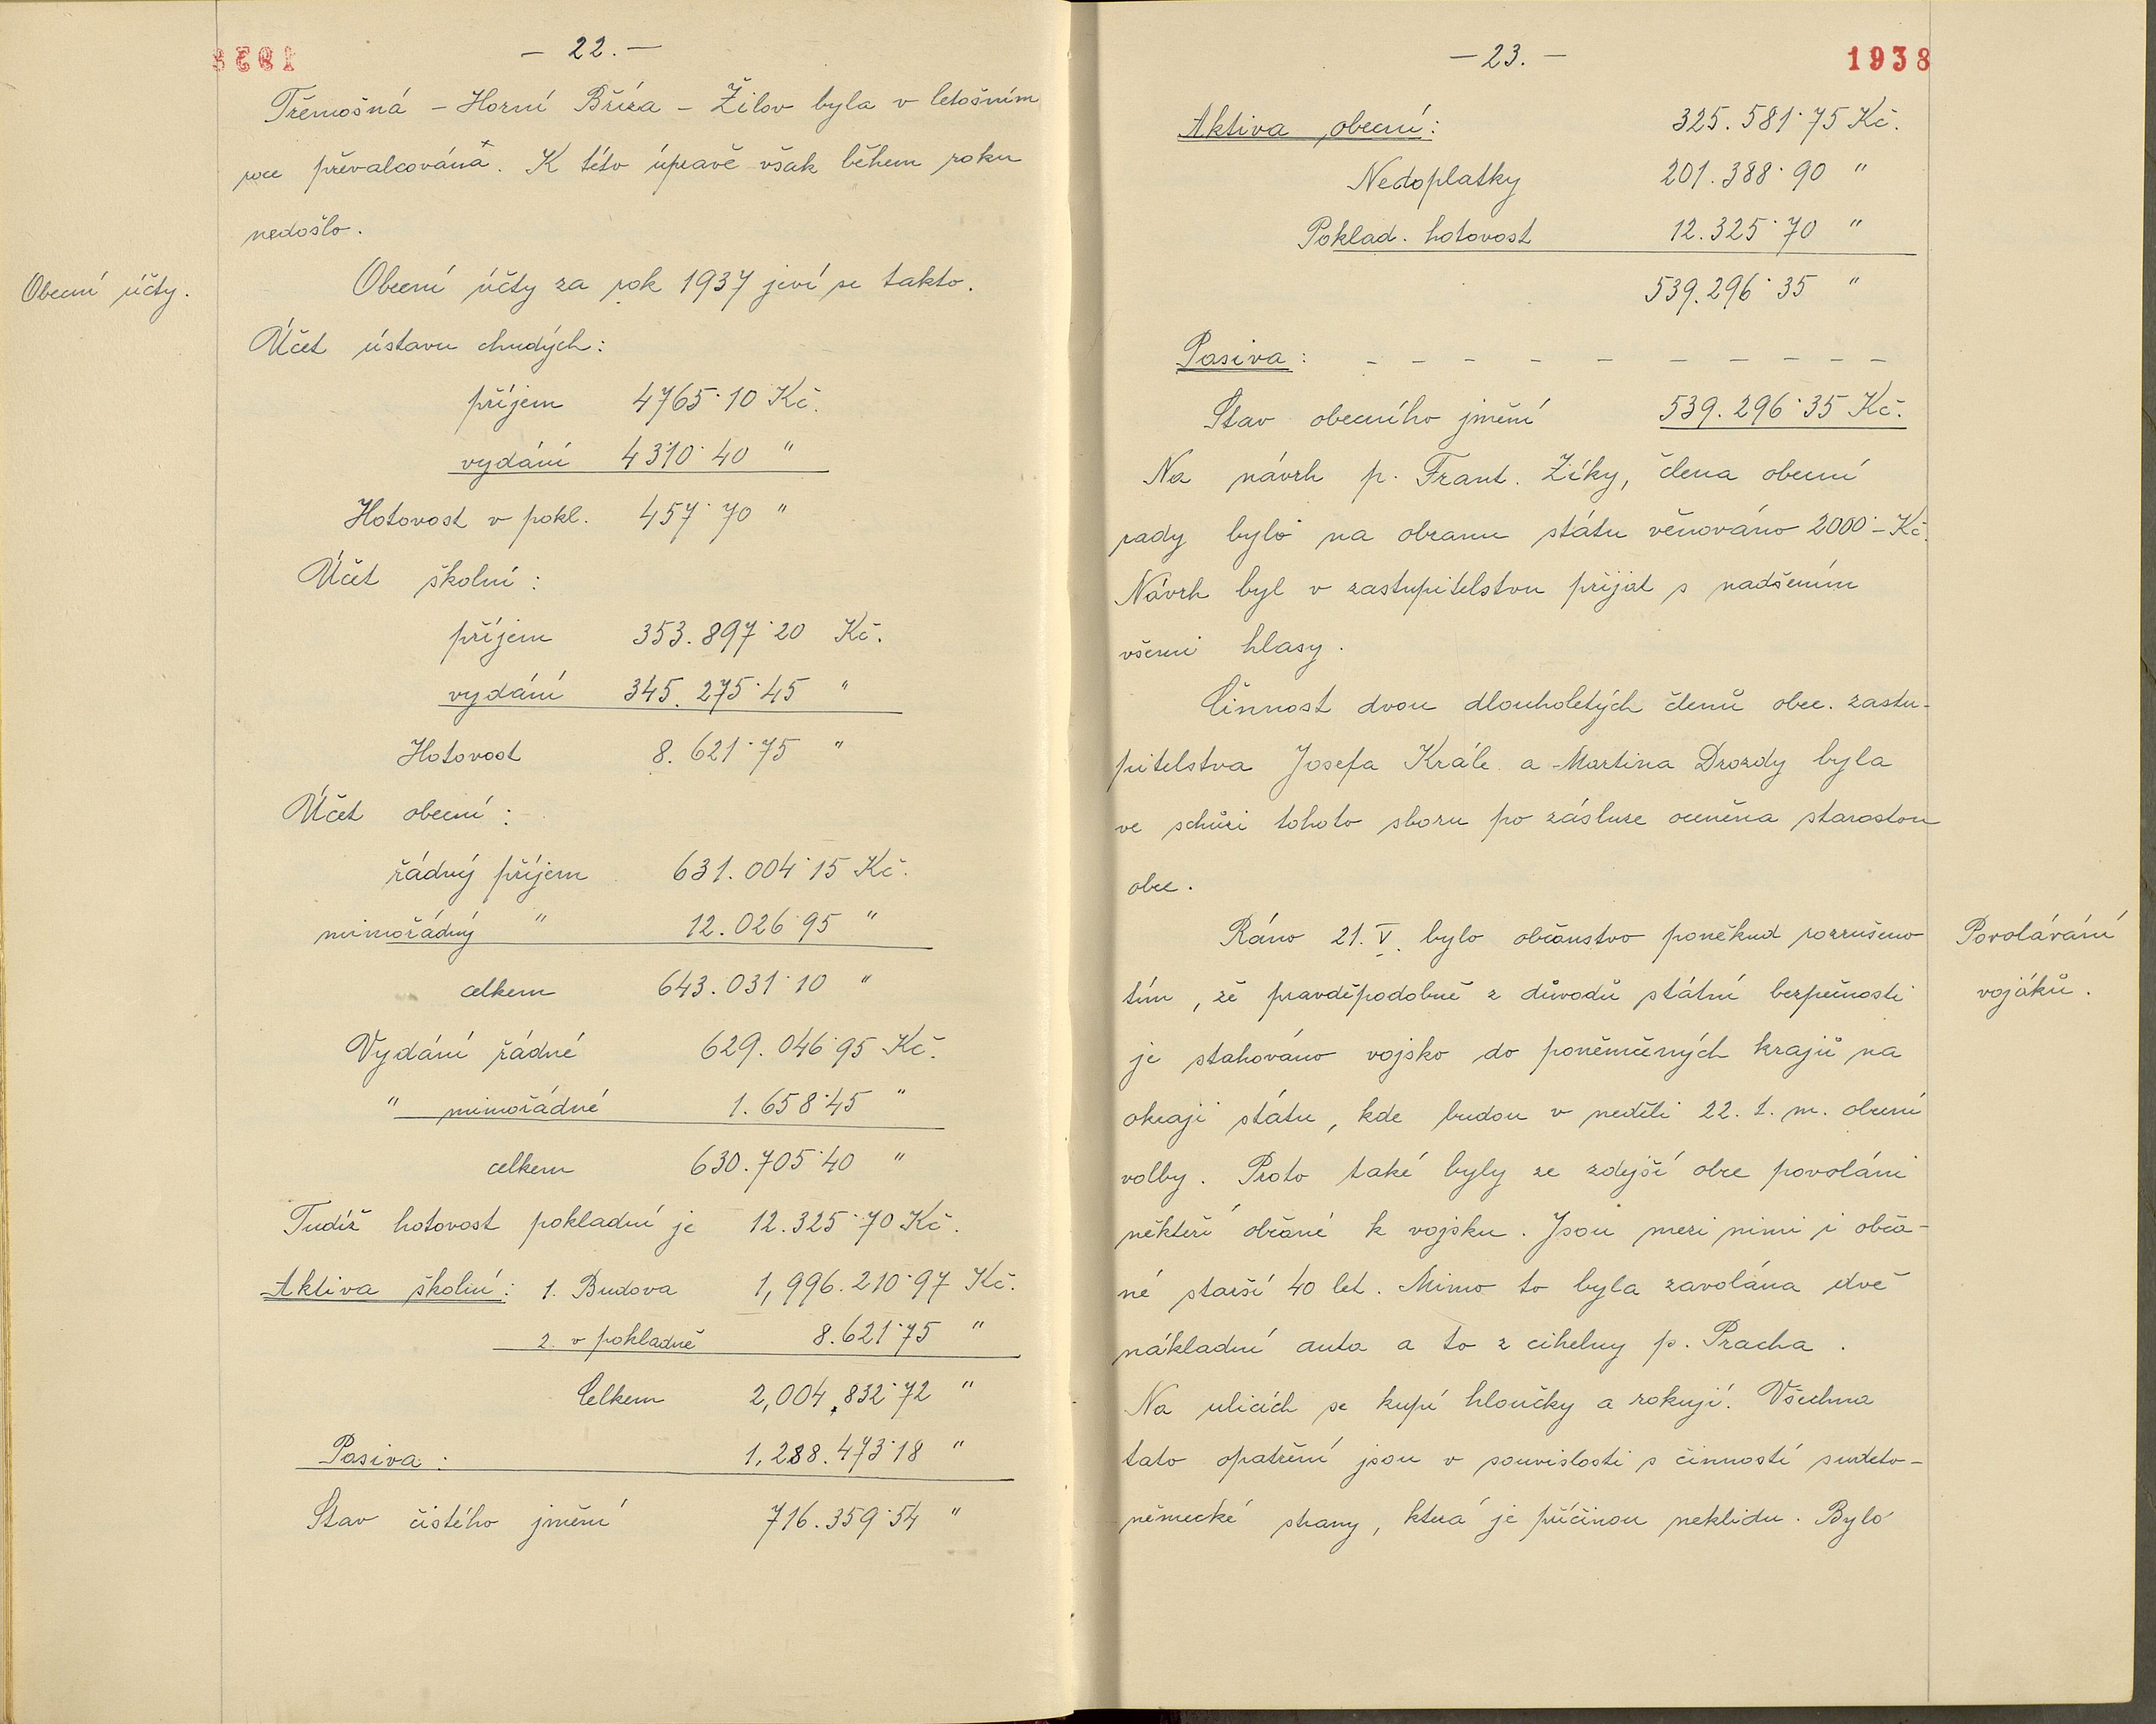 - 22. -
Třemošná - Horní Bříza - Žilov byla v letošním
roce převalcována. K této úpravě však během roku
nedošlo.
Obecní účty.
Obecní účty za rok 1937 jeví se takto.
Účet ústavu chudých:
příjem 4765·10 Kč.
vydání 4310·40 "
Hotovost v pokl. 457·70 "
Účet školní:
příjem 353.897·20 Kč.
vydání 345.275·45 "
Hotovost 8.621·75 "
Účet obecní:
řádný příjem 631.004·15 Kč.
mimořádný " 12.026·95 "
celkem 643.031·10 "
Vydání řádné 629.046·95 Kč.
" mimořádné 1.658·45 "
celkem 630.705·40 "
Tudíž hotovost pokladní je 12.325·70 Kč.
Aktiva školní: 1. Budova 1,996.210·97 Kč.
2. v pokladně 8.621·75 "
Celkem 2,004.832·72 "
Pasiva: 1,288.473·18 "
Stav čistého jmění 716.359·54 "
- 23. -
1938
Aktiva obecní: 325.581·75 Kč.
Nedoplatky 201.388·90 "
Poklad. hotovost 12.325·70 "
539.296·35 "
Pasiva: - - - - - - - - - - -
Stav obecního jmění 539.296·35 Kč.
Na návrh p. Frant. Zíky, člena obecní
rady bylo na obranu státu věnováno 2000·- Kč.
Návrh byl v zastupitelstvu přijat s nadšením
všemi hlasy.
Činnost dvou dlouholetých členů obec. zastu-
pitelstva Josefa Krále a Martina Drozdy byla
ve schůzi tohoto sboru po zásluze oceněna starostou
obce.
Povolávání
vojáků.
Ráno 21. V. bylo občanstvo poněkud rozrušeno
tím, že pravděpodobně z důvodů státní bezpečnosti
je stahováno vojsko do poněmčených krajů na
okraji státu, kde budou v neděli 22. t. m. obecní
volby. Proto také byly ze zdejší obce povoláni
někteří občané k vojsku. Jsou mezi nimi i obča-
né starší 40 let. Mimo to byla zavolána dvě
nákladní auta a to z cihelny p. Pracha.
Na ulicích se kupí hloučky a rokují. Všechna
tato opatření jsou v souvislosti s činností sudeto-
německé strany, která je příčinou neklidu. Bylo